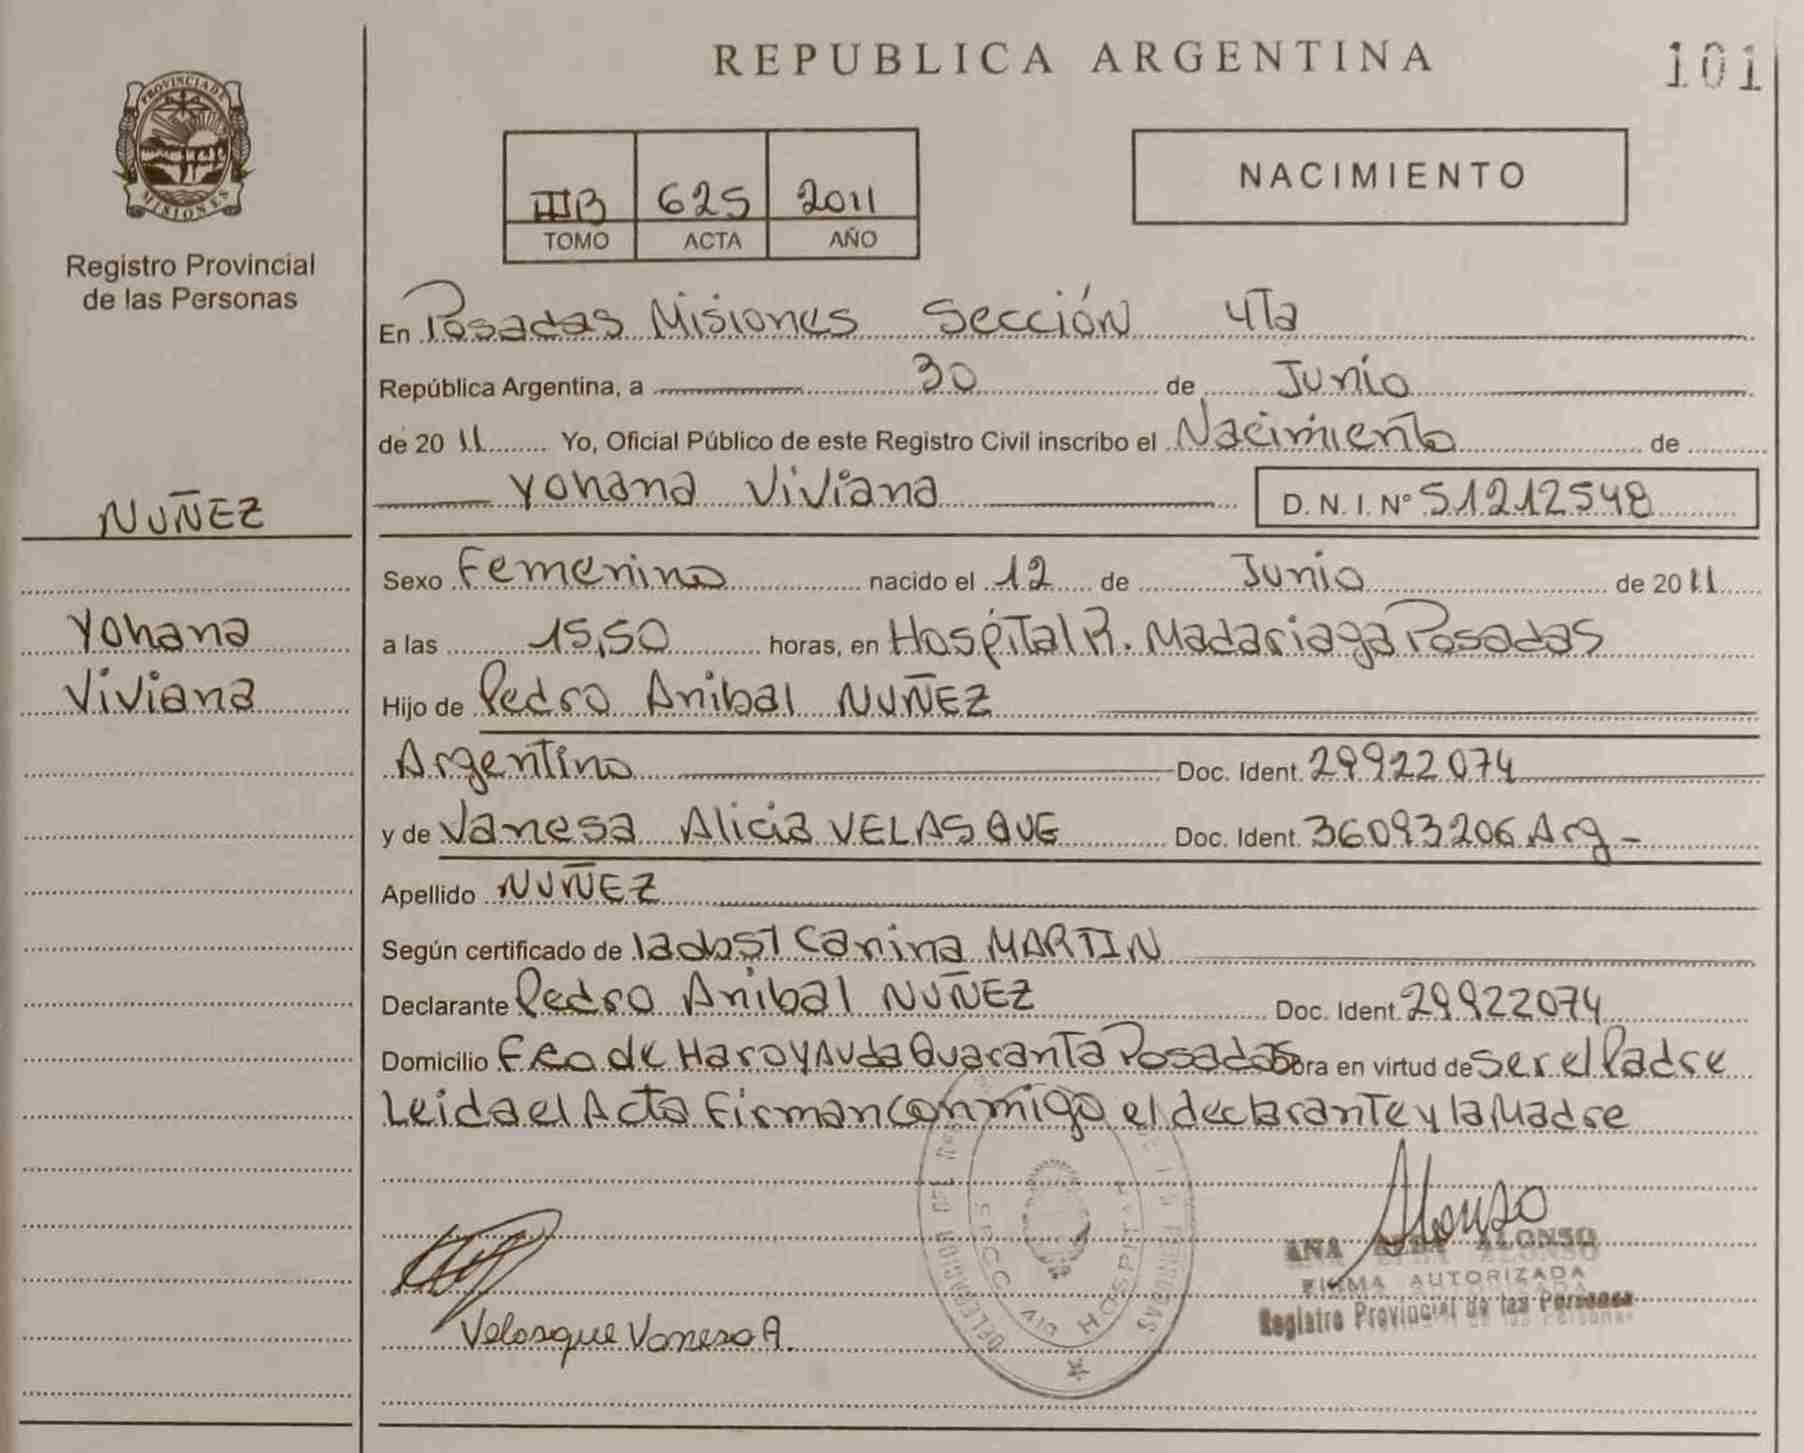 REPUBLICA ARGENTINA
101
PROVINCIA DE
MISIONES
Registro Provincial
de las Personas
IIIB 625 2011
TOMO ACTA AÑO
NACIMIENTO
En Posadas Misiones Sección 4Ta
República Argentina, a 30 de Junio
de 20 11 Yo, Oficial Público de este Registro Civil inscribo el Nacimiento de
Yohana Viviana D. N. I. Nº 51212548
NUÑEZ
Yohana
Viviana
Sexo Femenino nacido el 12 de Junio de 2011
a las 15,50 horas, en Hospital R. Madariaga Posadas
Hijo de Pedro Anibal NUÑEZ
Argentino Doc. Ident. 29922074
y de Vanesa Alicia VELASQUE Doc. Ident. 36093206 Arg -
Apellido NUÑEZ
Según certificado de Carina MARTIN
Declarante Pedro Anibal NUÑEZ Doc. Ident. 29922074
Domicilio Fco de Haro y Avda Quaranta Posadas Obra en virtud de ser el Padre
Leida el Acta Firman conmigo el declarante y la Madre
Alonso
ANA ALONSO
FIRMA AUTORIZADA
Registro Provincial de las Personas
Velasque Vanesa A.
DELEGACION DEL
SECC
HOSPITAL